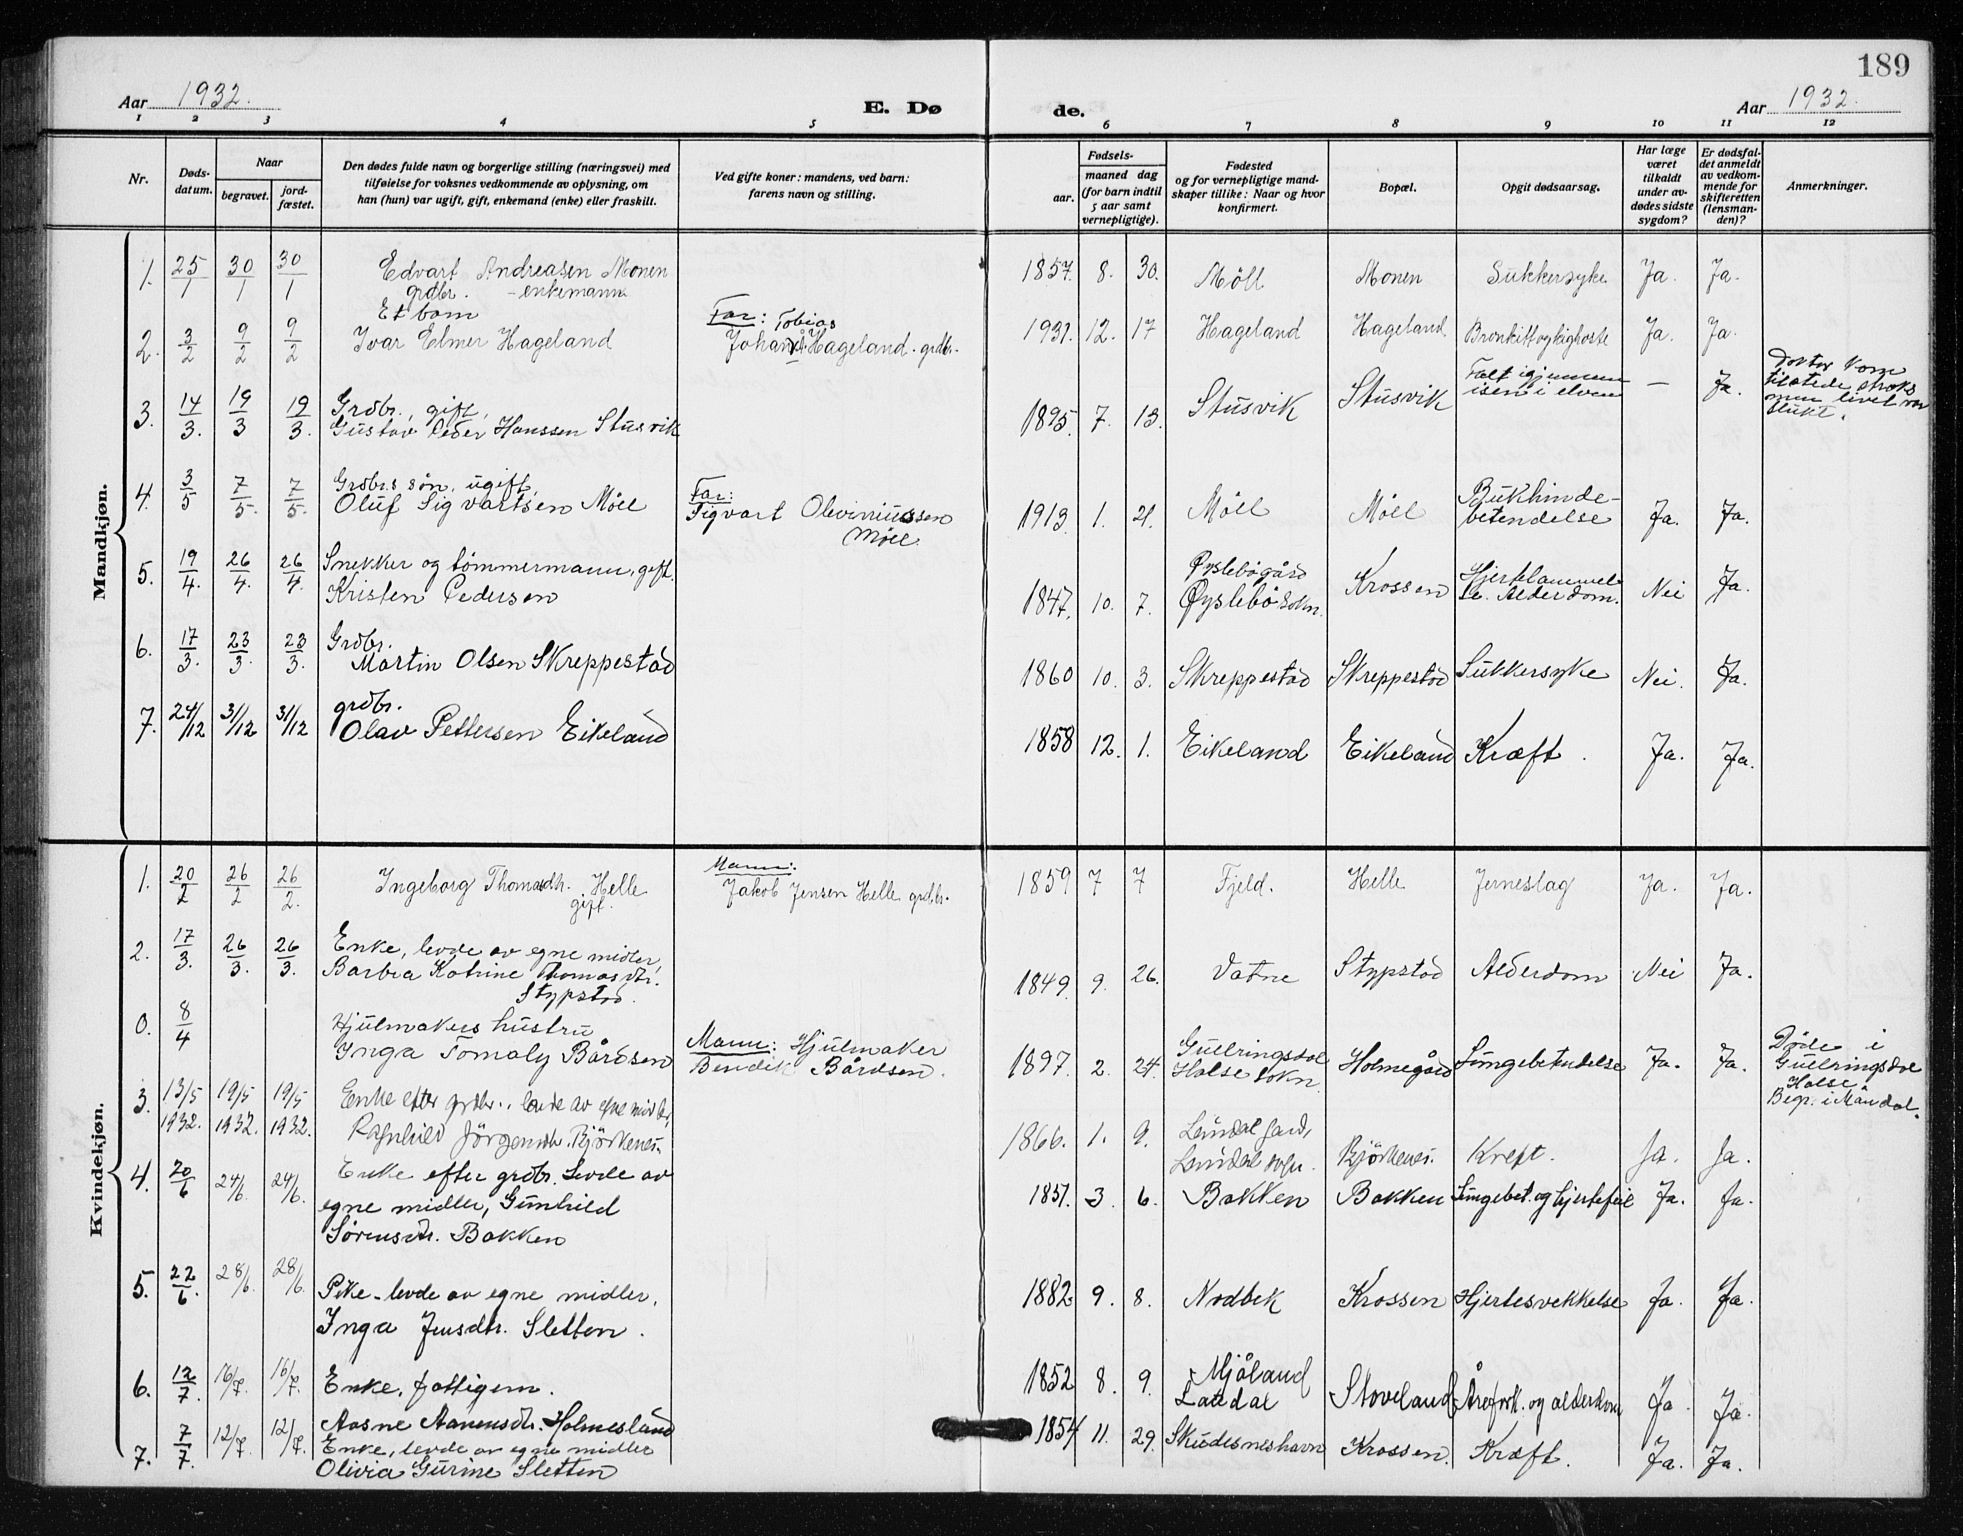 189
Aar 1932. E. Dø de. Aar 1932.
1 2 3 4 5 6 7 8 9 10 11 12
Nr. Døds-datum. Naar begravet. jord-fæstet. Den dødes fulde navn og borgerlige stilling (næringsvei) med tilføielse for voksnes vedkommende av oplysning, om han (hun) var ugift, gift, enkemand (enke) eller fraskilt. Ved gifte koner: mandens, ved barn: farens navn og stilling. Fødsels- aar. maaned dag (for barn indtil 5 aar samt vernepligtige). Fødested og for vernepligtige mand-skaper tillike: Naar og hvor konfirmert. Bopæl. Opgit dødsaarsag. Har læge været tilkaldt under av-dødes sidste sygdom? Er dødsfal-det anmeldt av vedkom-mende for skifteretten (lensman-den)? Anmerkninger.
Mandkjøn.
1. 25/1 30/1 30/1 Edvart Andreasen Monen grdbr. - enkemann 1857. 8. 30. Møll Monen Sukkersyke Ja. Ja.
2. 3/2 9/2 9/2 Et barn Ivar Elmer Hageland Far: Tobias Johan Hageland. grdbr. 1931. 12. 17 Hageland Hageland Bronkitt og kighoste Ja. Ja.
3. 14/3. 19/3 19/3. Grdbr., gift, Gustav Peder Hanssen Stusvik 1895. 7. 13. Stusvik Stusvik Falt igjennem isen i elven — Ja. Doktor kom tilstede straks men livet var slukt.
4. 3/5 7/5. 7/5. Grdbr.s søn, ugift, Oluf Sigvartsen Møll Far: Sigvart Oliviniussen Møll. 1913. 1. 21. Møll Møll Bukhinde-betendelse Ja. Ja.
5. 19/4. 26/4. 26/4. Snekker og tømmermann, gift. Kristen Pedersen 1847. 10. 7. Øyslebøgård Øyslebø sokn. Krossen Hjertelammelse. Alderdom. Nei Ja.
6. 17/3. 23/3. 23/3. Grdbr. Martin Olsen Skreppestad 1860 10. 3. Skreppestad Skreppestad Sukkersyke Nei. Ja.
7. 24/12 31/12 31/12 grdbr. Olav Pettersen Eikeland 1858 12. 1. Eikeland Eikeland Kræft. Ja. Ja.
Kvindekjøn.
1. 20/2 26/2 26/2. Ingeborg Thomasdtr. Helle gift. Mann: Jakob Jensen Helle grdbr. 1859 7 7 Fjeld. Helle Jerneslag Ja. Ja.
2. 17/3. 26/3. 26/3. Enke, levde av egne midler, Barbra Katrine Thomasdtr. Stypstad. 1849. 9. 26. Vatne Stypstad Alderdom Nei Ja.
0. 8/4 Hjulmakers hustru Inga Tomaly Bårdsen Mann: Hjulmaker Bendik Bårdsen. 1897. 2. 24. Gullringsdal Halse sokn Holmegård Lungebetendelse Ja. Ja. Døde i Gullringsdal Halse. Begr. i Mandal.
3. 13/5 1932. 19/5 1932. 19/5 1932. Enke efter grdbr., levde av egne midler, Ragnhild Jørgensdtr. Bjørkenes. 1866. 1. 9. Laudal gard, Laudal sogn. Bjørkenes. Kreft. Ja. Ja.
4. 20/6 24/6. 24/6. Enke efter grdbr. Levde av egne midler, Gunhild Sørensdtr. Bakken 1851. 3. 6. Bakken Bakken Lungebet. og hjertefeil Ja. Ja.
5. 22/6. 28/6. 28/6. Pike - levde av egne midler. Inga Jensdtr. Sletten. 1882 9. 8. Nodbek Krossen Hjertesvekkelse Ja. Ja.
6. 12/7. 16/7. 16/7. Enke, fattigem. Aasne Aanensdtr. Holmesland 1852 8. 9. Mjåland Laudal Stoveland Årefork. og alderdom Ja. Ja.
7. 7/7. 12/7. 12/7. Enke, levde av egne midler Olivia Gurine Sletten 1854 11. 29. Skudesneshavn Krossen. Kræft. Ja. Ja.